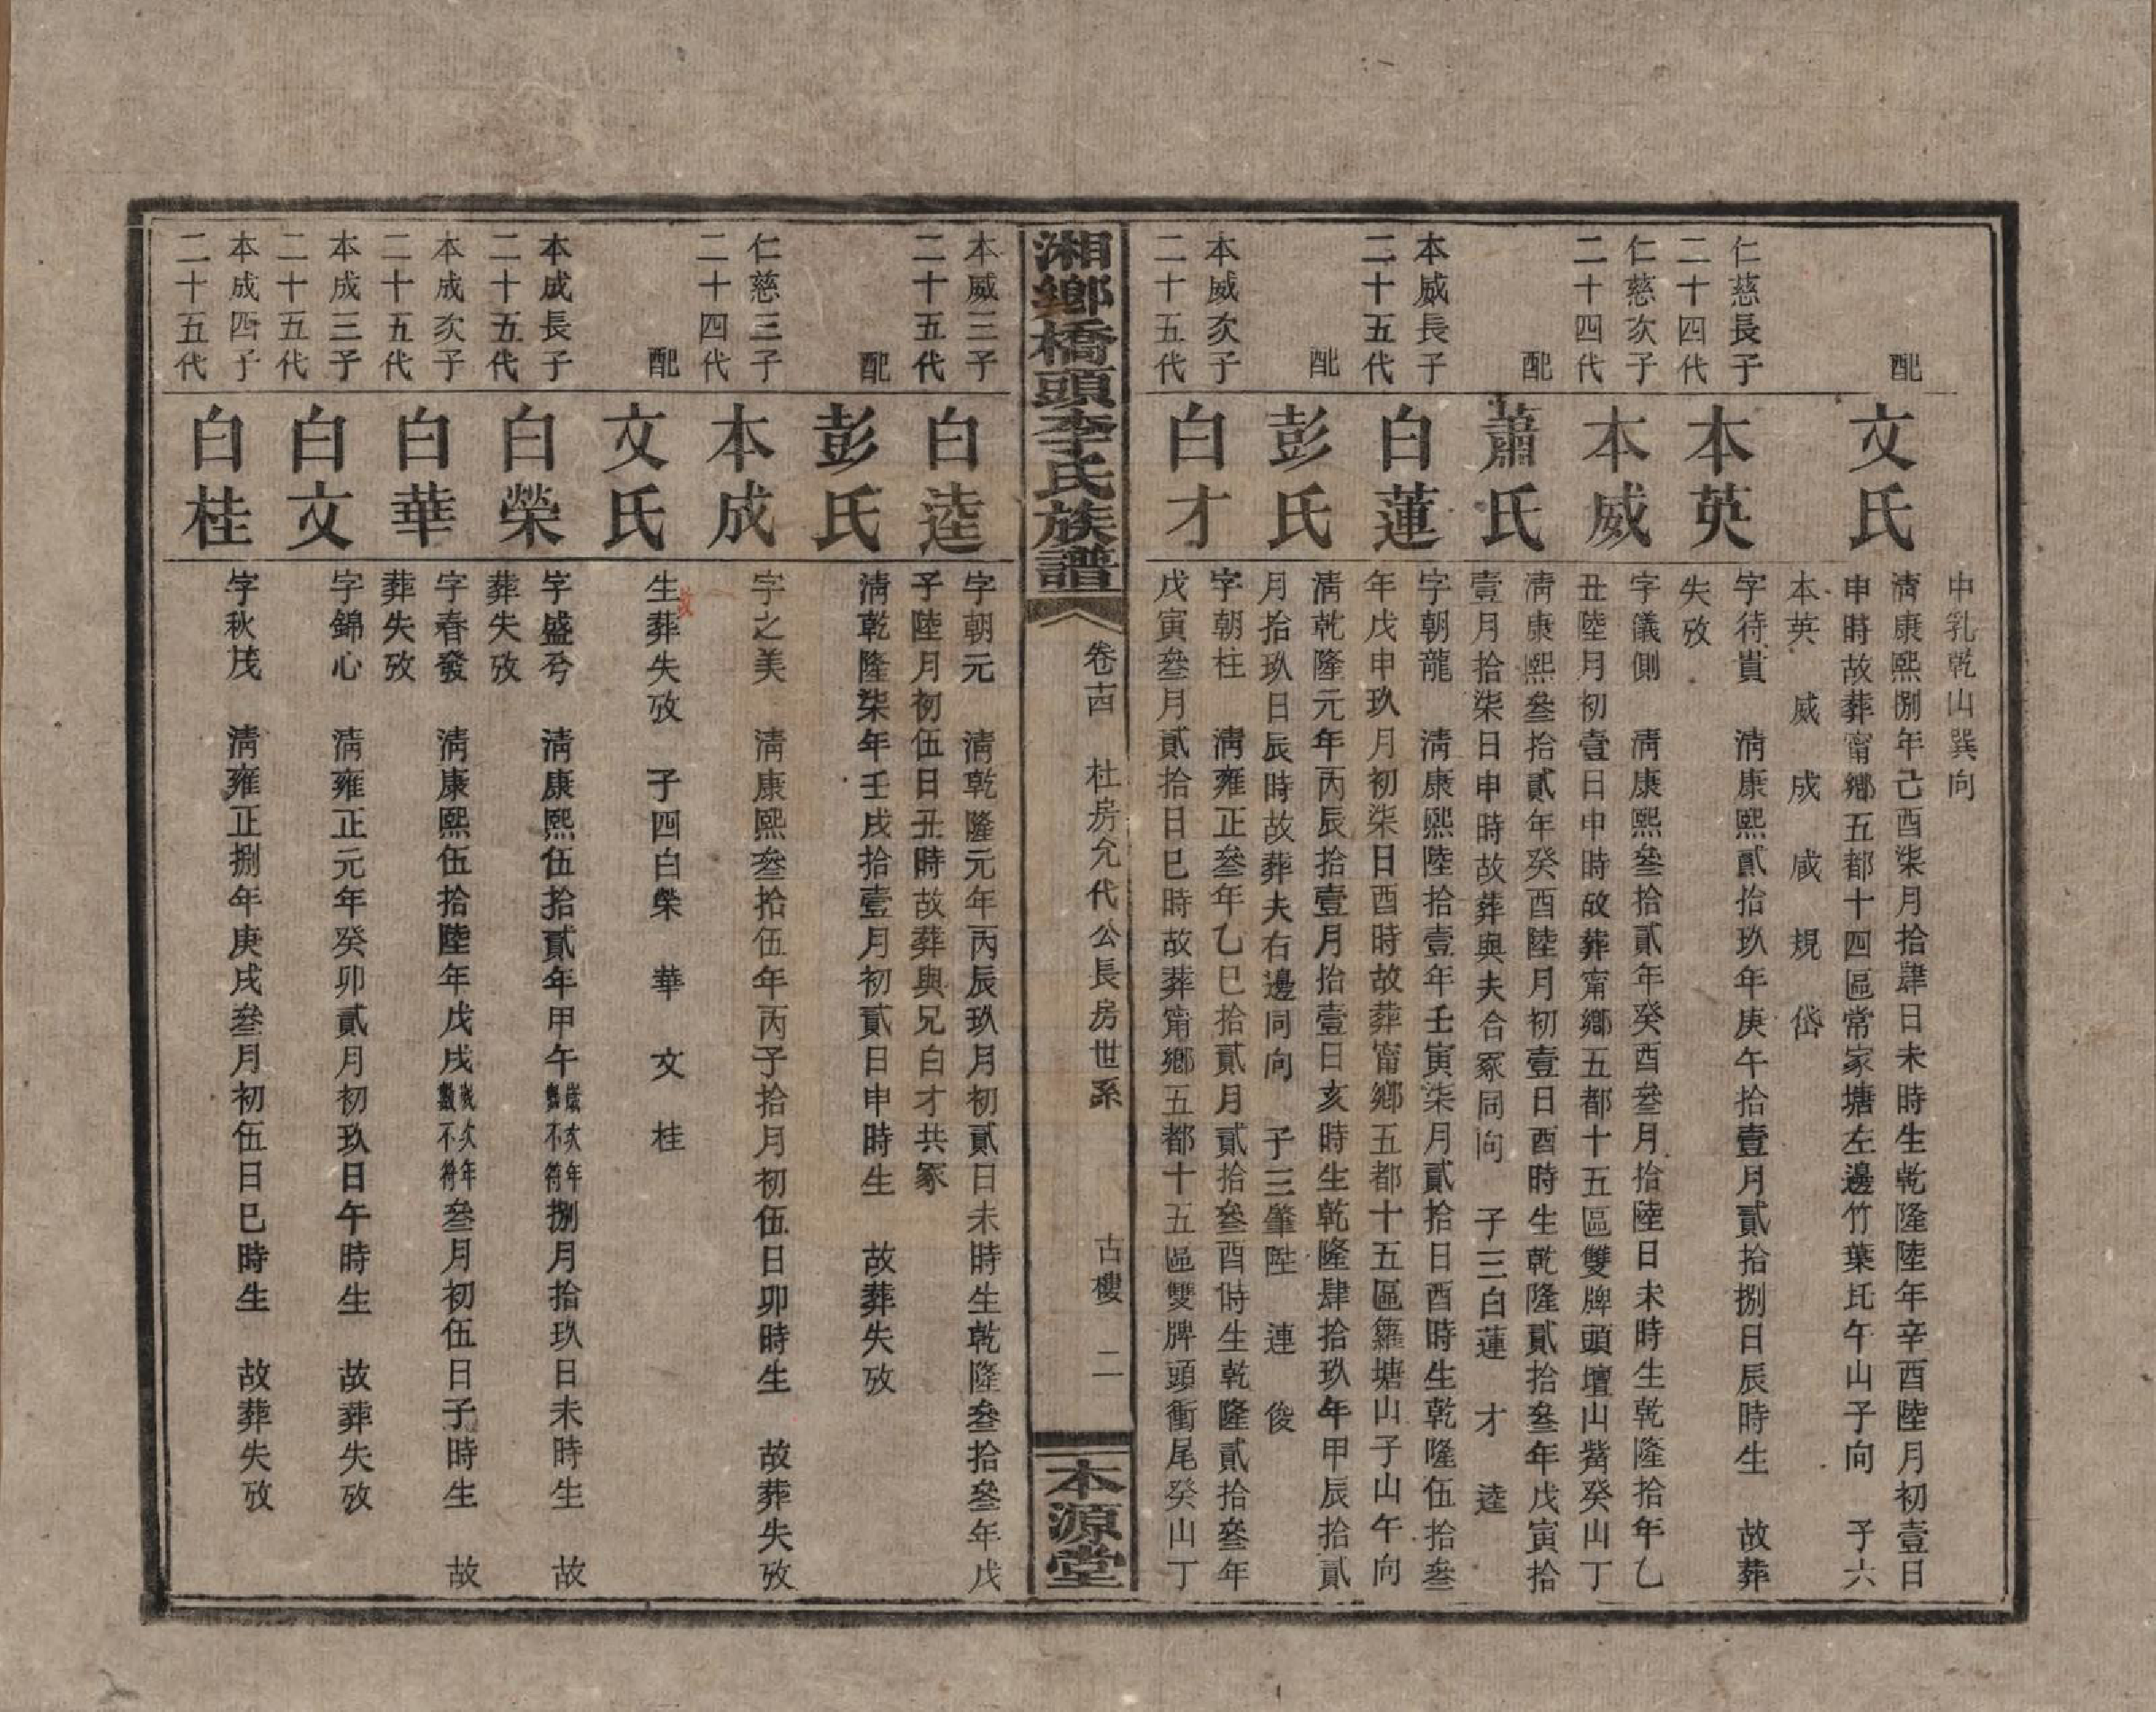 申乳乾山巽向
配
文氏
清康熙捌年己酉柒月拾肆日未時生乾隆陸年辛酉陸月初壹日
申時故葬甯鄉五都十四區常家塘左邊竹葉氏午山子向　子六
本英　威　成　咸　規　岱
仁慈長子
二十四代
本英
字待貴　清康熙貳拾玖年庚午拾壹月貳拾捌日辰時生　故葬
失攷
仁慈次子
二十四代
本威
字儀側　清康熙叄拾貳年癸酉叄月拾陸日未時生乾隆拾年乙
丑陸月初壹日申時故葬甯鄉五都十五區雙牌頭壇山觜癸山丁
配
蕭氏
清康熙叄拾貳年癸酉陸月初壹日酉時生乾隆貳拾叄年戊寅拾
壹月拾柒日申時故葬與夫合冢同向　子三白蓮　才　逵
本威長子
二十五代
白蓮
字朝龍　清康熙陸拾壹年壬寅柒月貳拾日酉時生乾隆伍拾叄
年戊申玖月初柒日酉時故葬甯鄉五都十五區籮塘山子山午向
配
彭氏
清乾隆元年丙辰拾壹月拾壹日亥時生乾隆肆拾玖年甲辰拾貳
月拾玖日辰時故葬夫右邊同向　子三肇陞　連　俊
本威次子
二十五代
白才
字朝柱　清雍正叄年乙巳拾貳月貳拾叄酉時生乾隆貳拾叄年
戊寅叄月貳拾日巳時故葬甯鄉五都十五區雙牌頭衝尾癸山丁
湘鄉橋頭李氏族譜
卷十四　杜房允代公長房世系　古樓　二
本源堂
本威三子
二十五代
白逵
字朝元　清乾隆元年丙辰玖月初貳日未時生乾隆叄拾叄年戊
子陸月初伍日丑時故葬與兄白才共冢
配
彭氏
清乾隆柒年壬戌拾壹月初貳日申時生　故葬失攷
仁慈三子
二十四代
本成
字之美　清康熙叄拾伍年丙子拾月初伍日卯時生　故葬失攷
配
文氏
生葬失攷　子四白榮　華　文　桂
故
本成長子
二十五代
白榮
字盛兮　清康熙伍拾貳年甲午歲次年數不符捌月拾玖日未時生　故
葬失攷
本成次子
二十五代
白華
字春發　清康熙伍拾陸年戊戌歲次年數不符叄月初伍日子時生　故
葬失攷
本成三子
二十五代
白文
字錦心　清雍正元年癸卯貳月初玖日午時生　故葬失攷
本成四子
二十五代
白桂
字秋茂　清雍正捌年庚戌叄月初伍日巳時生　故葬失攷